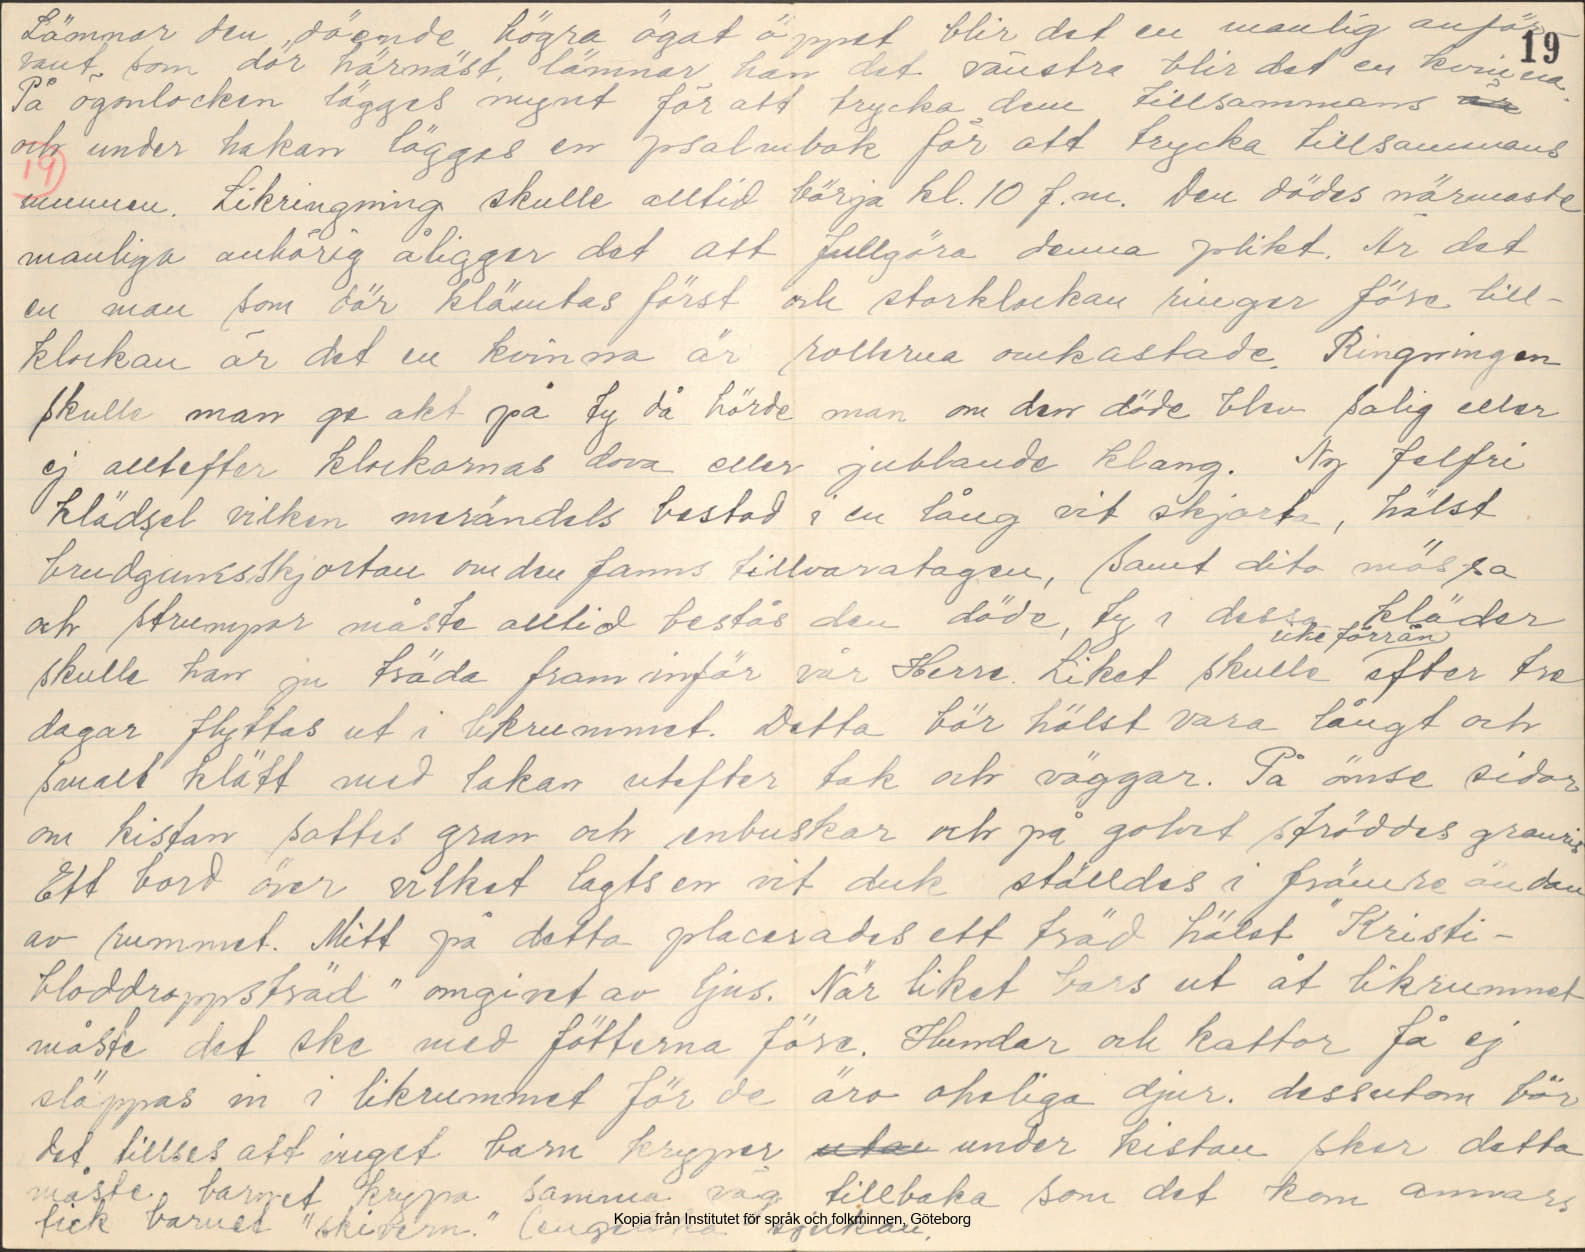 Lämnar den döende högra ögat öppet blir det en manlig anför-
19
vant som dör härnäst, lämnar han det vänstra blir det en kvinna.
På ögonlocken lägges mynt för att trycka dem tillsammans
och under hakan lägges en psalmbok för att trycka tillsammans
19)
munnen. Likringning skulle alltid börja kl. 10 f.m. Den dödes närmaste
manliga anhörig åligger det att fullgöra denna plikt. Är det
en man som dör klämtas först och storklockan ringer före lill-
klockan är det en kvinna är rollerna omkastade. Ringningen
skulle man ge akt på ty då hörde man om den döde blev salig eller
ej alltefter klockornas dova eller jublande klang. Ny felfri
klädsel vilken merändels bestod i en lång vit skjorta, hälst
brudgumsskjortan om den fanns tillvaratagen, samt dito mössa
och strumpor måste alltid bestås den döde, ty i dessa kläder
icke förrän
skulle han ju träda fram inför vår Herre. Liket skulle efter tre
dagar flyttas ut i likrummet. Detta bör hälst vara långt och
smalt klätt med lakan utefter tak och väggar. På ömse sidor
om kistan sattes gran och enbuskar och på golvet ströddes granris
Ett bord över vilket lagts en vit duk ställdes i främre ändan
av rummet. Mitt på detta placerades ett träd hälst "Kristi-
bloddroppsträd" omgivet av ljus. När liket bars ut åt likrummet
måste det ske med fötterna före. Hundar och kattor få ej
släppas in i likrummet för de äro oheliga djur. dessutom bör
det tillses att inget barn kryper utan under kistan sker detta
måste barnet krypa samma väg tillbaka som det kom annars
fick barnet "skivern." (engelska sjukan.
Kopia från Institutet för språk och folkminnen, Göteborg